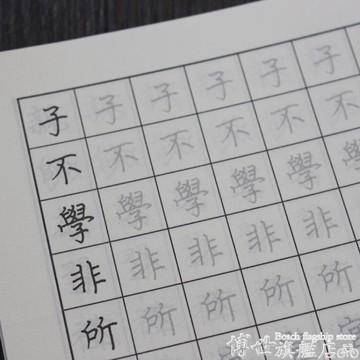 子 子 子 子 子 子
不 不 不 不 不 不
學 學 學 學 學 學
非 非 非 非 非 非
所 所 所 所 所 所
Bosch flagship store
博世旗艦店品